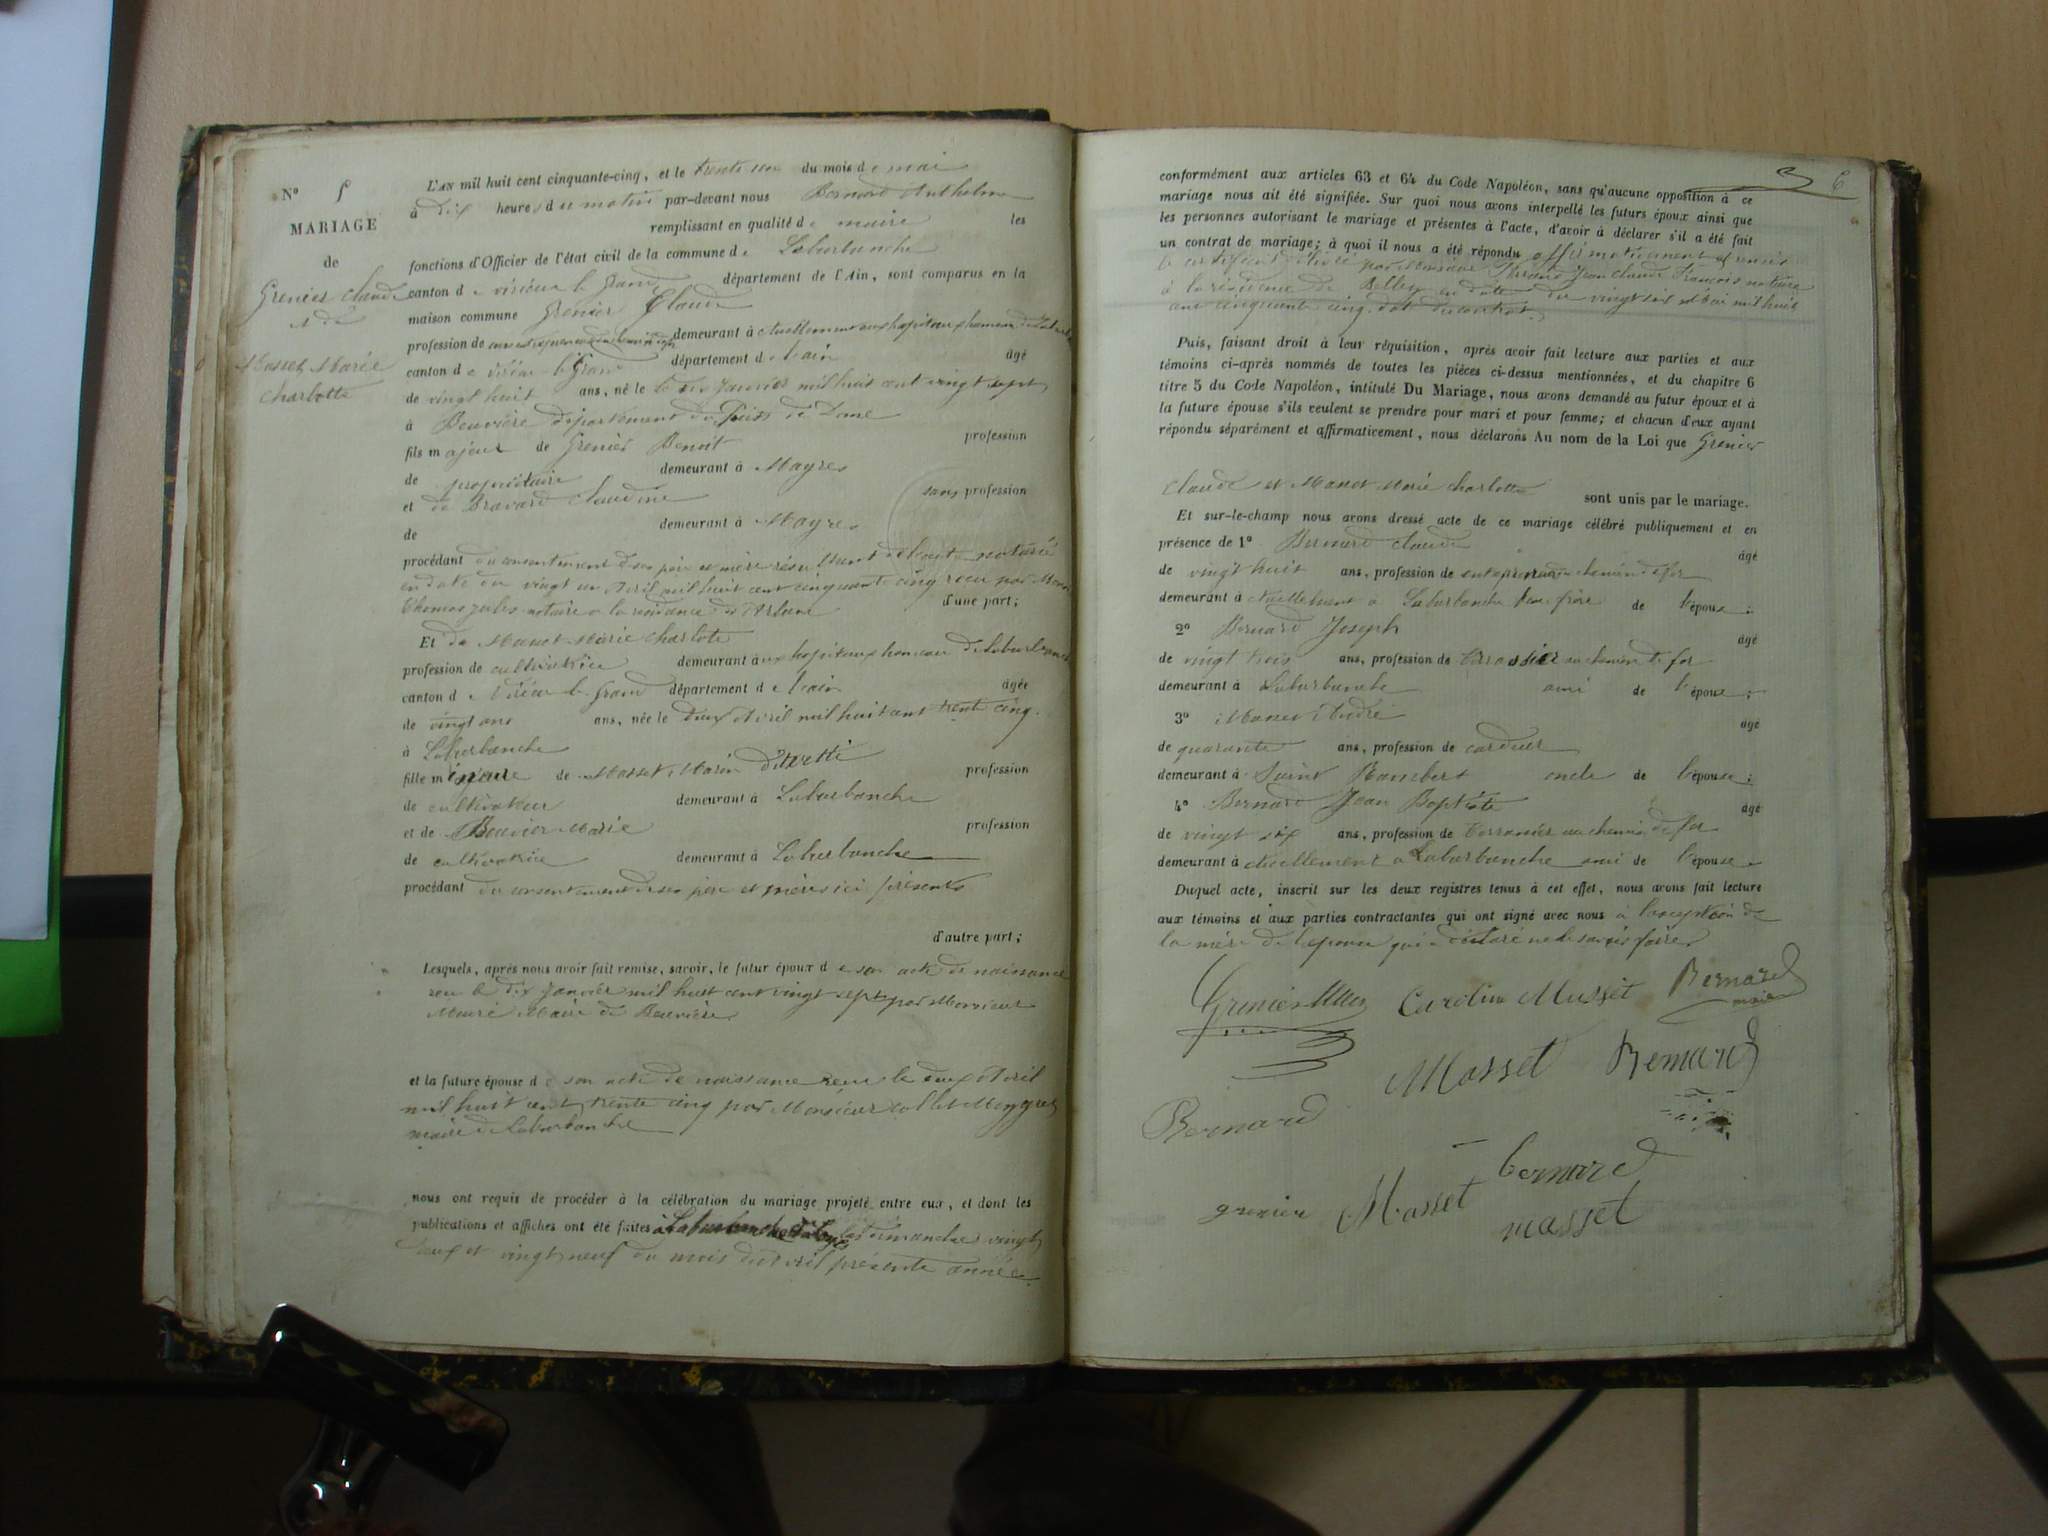 N° 5
MARIAGE
de
Grenier Claude
et de
Masset Marie
Charlotte
L'AN mil huit cent cinquante-cinq, et le trente un du mois de mai
à dix heures du matin par-devant nous Bernard Anthelme
remplissant en qualité de maire les
fonctions d'Officier de l'état civil de la commune de Laburbanche
canton de virieu le Grand, département de l'Ain, sont comparus en la
maison commune Grenier Claude
profession de demeurant à actuellement aux hopitaux hameau de
canton de virieu le Grand département de l'ain âgé
de vingt huit ans, né le dix janvier mil huit cent vingt sept
à Beuvière département du Puiss de Dome
fils majeur de Grenier Benoit profession
de propriétaire demeurant à Mayres
et de Bravard claudine sans profession
de demeurant à Mayres
procédant du consentement de ses père et mère résultant de l'acte notarié
en date du vingt un Avril mil huit cent cinquante cinq recu par
Thomas jules notaire a la residence d'Arlanc d'une part;
Et de Masset Marie charlotte
profession de cultivatrice demeurant aux hopitaux hameau de Laburbanche
canton de Virieu le Grand département de l'ain âgée
de vingt ans ans, née le deux Avril mil huit cent trente cinq.
à Laburbanche
fille mineure de Masset Marin profession
de cultivateur demeurant à Laburbanche
et de Bouvier Marie profession
de cultivatrice demeurant à Laburbanche
procédant du consentement de ses père et mère ici présents
d'autre part;
Lesquels, après nous avoir fait remise, savoir, le futur époux de son acte de naissance
recu le dix Janvier mil huit cent vingt sept par Monsieur
Maire de Beuvière
et la future épouse de son acte de naissance recu le deux Avril
mil huit cent trente cinq par Monsieur
maire de Laburbanche
nous ont requis de procéder à la célébration du mariage projeté entre eux, et dont les
publications et affiches ont été faites à les dimanches vingt
deux et vingt neuf du mois d'avril présente année.
6
conformément aux articles 63 et 64 du Code Napoléon, sans qu'aucune opposition à ce
mariage nous ait été signifiée. Sur quoi nous avons interpellé les futurs époux ainsi que
les personnes autorisant le mariage et présentes à l'acte, d'avoir à déclarer s'il a été fait
un contrat de mariage; à quoi il nous a été répondu affirmativement et remis
le certificat délivré par Monsieur Jean claude François notaire
à la résidence de Belley en date du vingt six mai mil huit
cent cinquante cinq dudit contrat.
Puis, faisant droit à leur réquisition, après avoir fait lecture aux parties et aux
témoins ci-après nommés de toutes les pièces ci-dessus mentionnées, et du chapitre 6
titre 5 du Code Napoléon, intitulé Du Mariage, nous avons demandé au futur époux et à
la future épouse s'ils veulent se prendre pour mari et pour femme; et chacun d'eux ayant
répondu séparément et affirmativement, nous déclarons Au nom de la Loi que Grenier
Claude et Masset Marie charlotte sont unis par le mariage.
Et sur-le-champ nous avons dressé acte de ce mariage célébré publiquement et en
présence de 1° Bernard claude âgé
de vingt huit ans, profession de entrepreneur chemin de fer
demeurant à actuellement à Laburbanche de l'épouse;
2° Bernard Joseph âgé
de vingt trois ans, profession de terrassier au chemin de fer
demeurant à Laburbanche ami de l'épouse;
3° Masset André âgé
de quarante ans, profession de cardeur
demeurant à Saint Rambert oncle de l'épouse;
4° Bernard Jean Baptiste âgé
de vingt six ans, profession de terrassier au chemin de fer
demeurant à actuellement a Laburbanche ami de l'épouse
Duquel acte, inscrit sur les deux registres tenus à cet effet, nous avons fait lecture
aux témoins et aux parties contractantes qui ont signé avec nous à l'exception de
la mère de l'épouse qui a déclaré ne le savoir faire
Grenier Caroline Musset Bernard
maire
Masset Bernard
Bernard
bernard
grenier Masset
masset